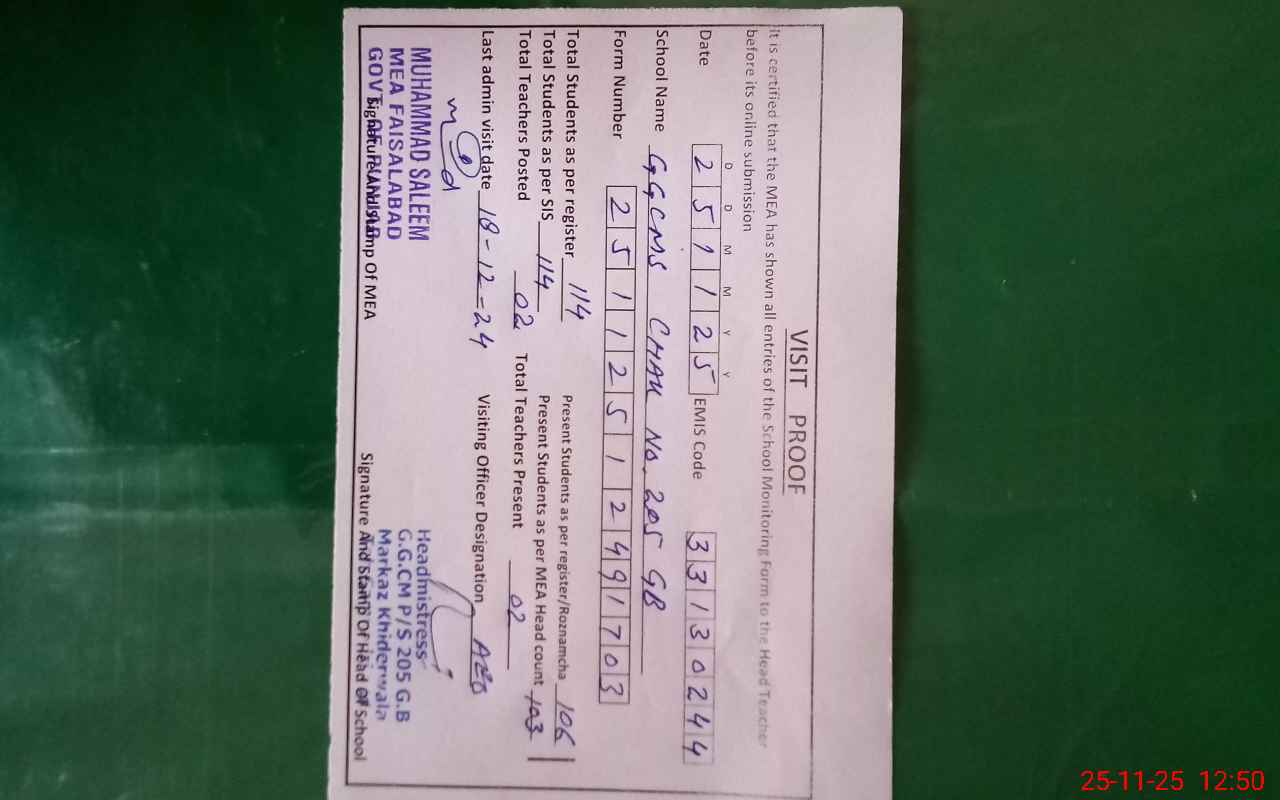 VISIT PROOF
It is certified that the MEA has shown all entries of the School Monitoring Form to the Head Teacher
before its online submission
D D M M Y Y
Date 2 5 1 1 2 5 EMIS Code 3 3 1 3 0 2 4 4
School Name GGCMS CHAK No. 205 GB
Form Number 2 5 1 1 2 5 1 2 4 9 1 7 0 3
Total Students as per register 114 Present Students as per register/Roznamcha 106
Total Students as per SIS 114 Present Students as per MEA Head count 103
Total Teachers Posted 02 Total Teachers Present 02
Last admin visit date 18-12-24 Visiting Officer Designation AEO
MUHAMMAD SALEEM
MEA FAISALABAD
GOVT. OF PUNJAB
Signature And Stamp Of MEA
Headmistress
G.G.CM P/S 205 G.B
Markaz Khiderwala
Signature And Stamp Of Head Of School
25-11-25 12:50